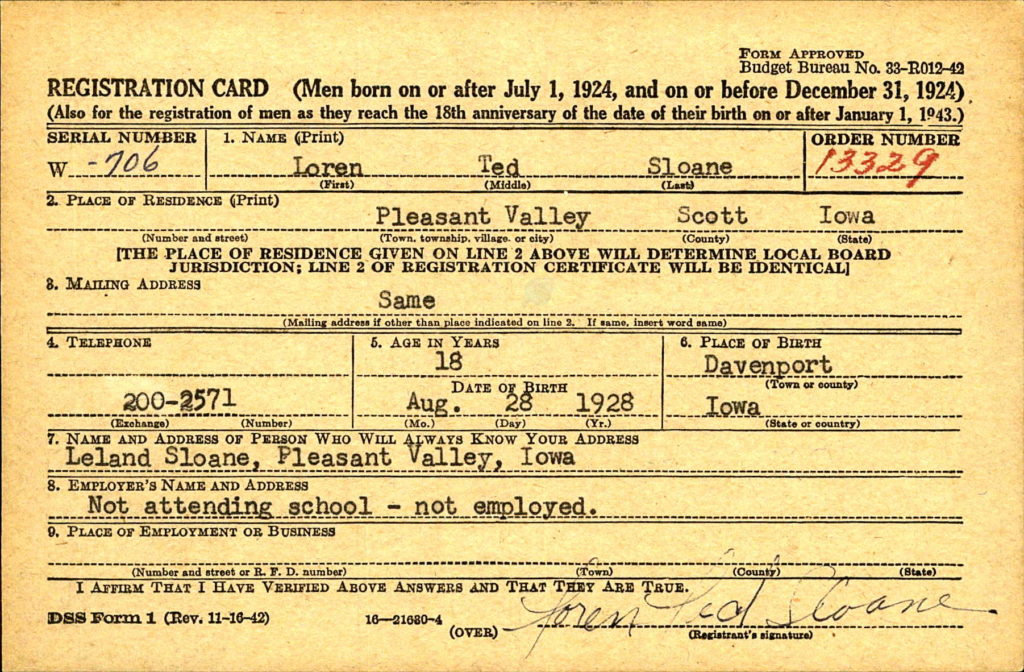 FORM APPROVED
Budget Bureau No. 33-R012-42
REGISTRATION CARD (Men born on or after July 1, 1924, and on or before December 31, 1924)
(Also for the registration of men as they reach the 18th anniversary of the date of their birth on or after January 1, 1943.)
SERIAL NUMBER 1. NAME (Print) ORDER NUMBER
W -706 Loren Ted Sloane 13329
(First) (Middle) (Last)
2. PLACE OF RESIDENCE (Print)
Pleasant Valley Scott Iowa
(Number and street) (Town, township, village, or city) (County) (State)
[THE PLACE OF RESIDENCE GIVEN ON LINE 2 ABOVE WILL DETERMINE LOCAL BOARD
JURISDICTION; LINE 2 OF REGISTRATION CERTIFICATE WILL BE IDENTICAL]
3. MAILING ADDRESS
Same
(Mailing address if other than place indicated on line 2. If same, insert word same)
4. TELEPHONE 5. AGE IN YEARS 6. PLACE OF BIRTH
18 Davenport
DATE OF BIRTH (Town or county)
200-2571 Aug. 28 1928 Iowa
(Exchange) (Number) (Mo.) (Day) (Yr.) (State or country)
7. NAME AND ADDRESS OF PERSON WHO WILL ALWAYS KNOW YOUR ADDRESS
Leland Sloane, Pleasant Valley, Iowa
8. EMPLOYER'S NAME AND ADDRESS
Not attending school - not employed.
9. PLACE OF EMPLOYMENT OR BUSINESS
(Number and street or R. F. D. number) (Town) (County) (State)
I AFFIRM THAT I HAVE VERIFIED ABOVE ANSWERS AND THAT THEY ARE TRUE.
DSS Form 1 (Rev. 11-16-42) 16—21630-4 (OVER) Loren Ted Sloane
(Registrant's signature)